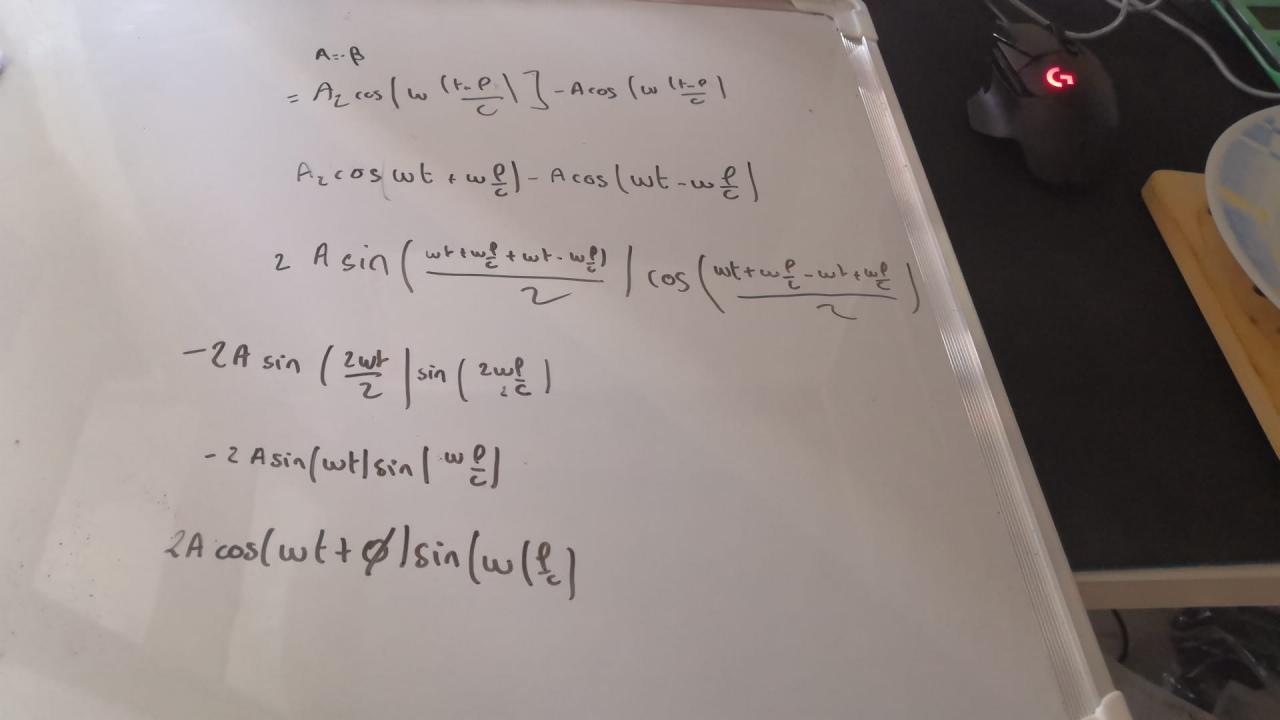 A=-β
= A₂ cos(ω (t-ρ/c)] - A cos (ω (t-ρ/c)
A₂ cos(ωt + ω ρ/c) - A cos(ωt - ω ρ/c)
2 A sin((ωt+ωρ/c + ωt - ωρ/c)/2) cos((ωt+ωρ/c - ωt + ωρ/c)/2)
-2A sin (2ωt/2) sin (2ωρ/2c)
-2 A sin(ωt) sin(ω ρ/c)
2A cos(ωt + ϕ) sin(ω(ρ/c)
G